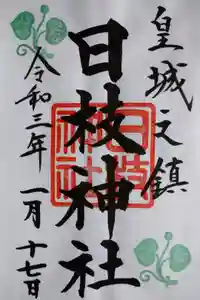 皇城之鎮
日枝神社
令和三年 一月 十七日
日枝神社